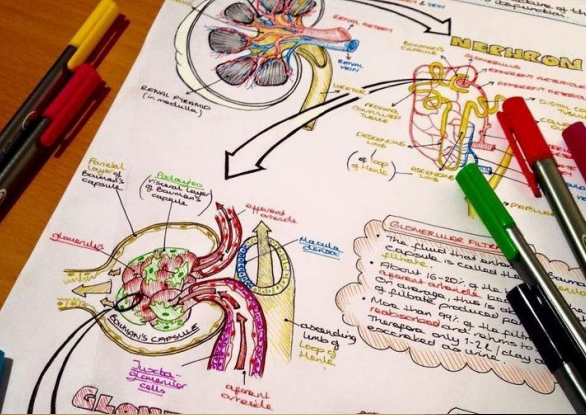 & VEIN
RENAL ARTERY
RENAL
VEIN
RENAL PYRAMID
(in medulla)
NEPHRON
BOWMAN'S
CAPSULE
GLOMERULUS
EFFERENT
AFFERENT
PROXIMAL
CONVOLUTED
TUBULE
DISTAL
DESCENDING
LIMB
(of loop
of Henle)
ASCENDING
LIMB
PAPILLA
Parietal
layer of
Bowman's
capsule
Podocytes
(visceral layer
of Bowman's
capsule)
efferent
arteriole
Macula
densa
glomerulus
BOWMAN'S CAPSULE
Juxta-
glomerular
cells
afferent
arteriole
ascending
limb of
Loop of
Henle
GLOMERULAR FILTR
• The fluid that enters
capsule is called the
filtrate.
• About 16-20% of the
afferent arterioles
On average, this is ab
of filtrate produced
• More than 99% of the filtr
reabsorbed and returns to
Therefore only 1-2 L/day
excreted as urine.
GLO